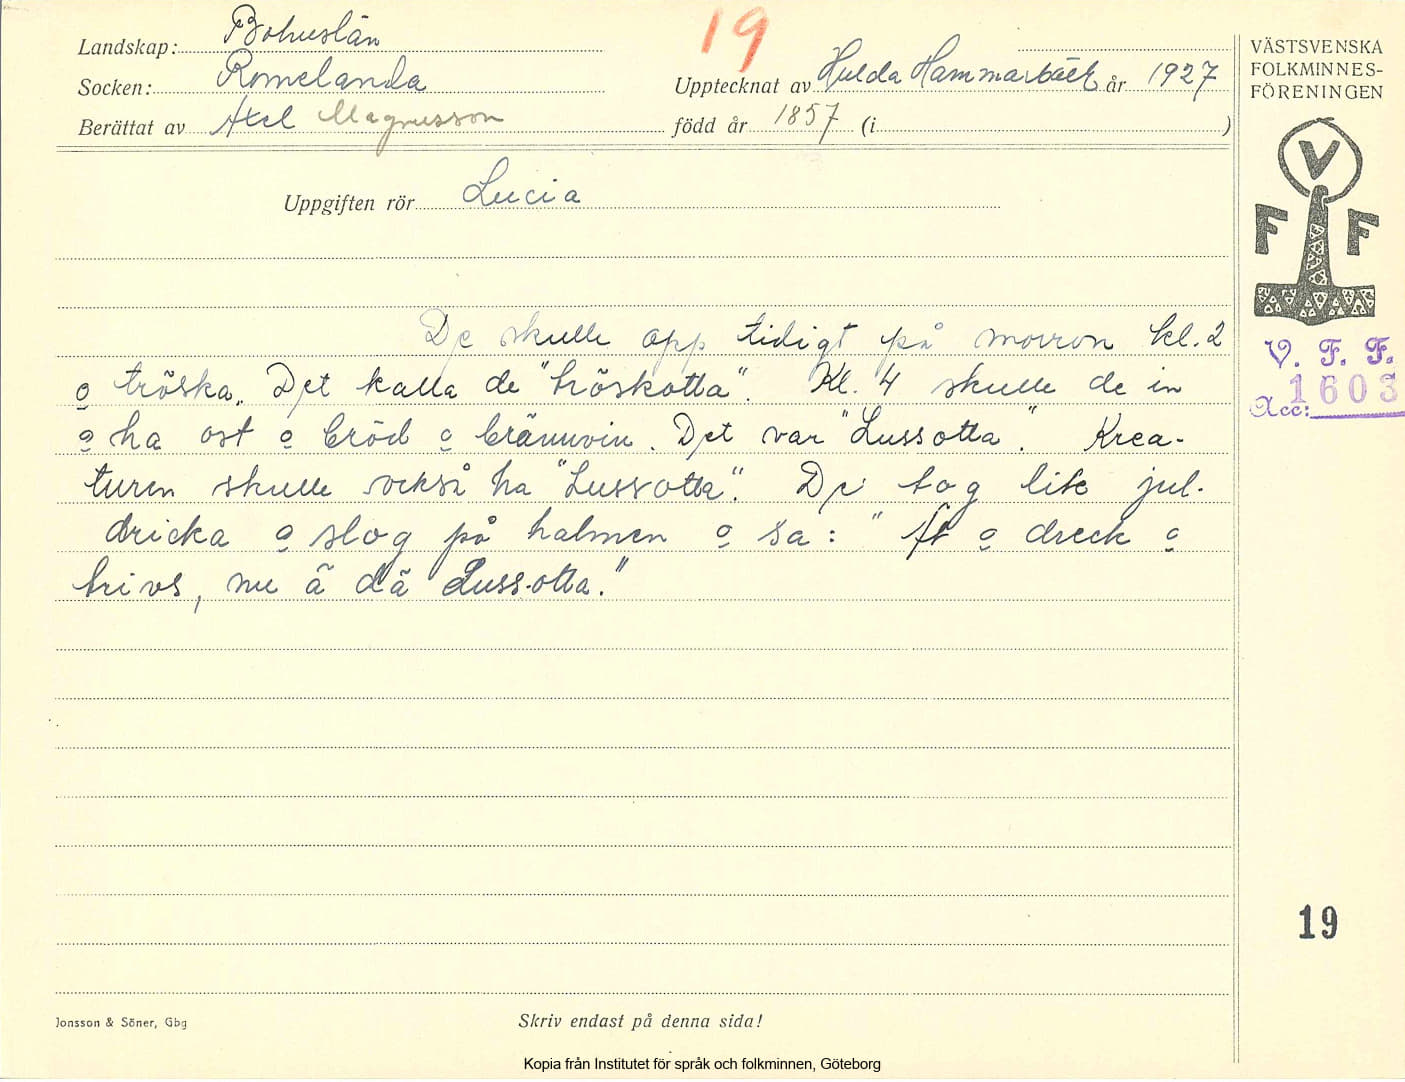 Landskap: Bohuslän
19
Socken: Romelanda
Upptecknat av Hulda Hammarbäck år 1927
Berättat av Axel Magnusson
född år 1857 (i )
Uppgiften rör Lucia
De skulle opp tidigt på morron kl. 2
o tröska. Det kalla de "tröskotta". Kl. 4 skulle de in
o ha ost o bröd o brännvin. Det var "Lussotta". Krea-
turen skulle också ha "Lussotta". De tog lite jul-
dricka o slog på halmen o sa: "Ät o dreck o
trivs, nu ä dä Luss-otta."
VÄSTSVENSKA
FOLKMINNES-
FÖRENINGEN
V
F F
V. F. F.
1603
Acc:
19
Jonsson & Söner, Gbg
Skriv endast på denna sida!
Kopia från Institutet för språk och folkminnen, Göteborg